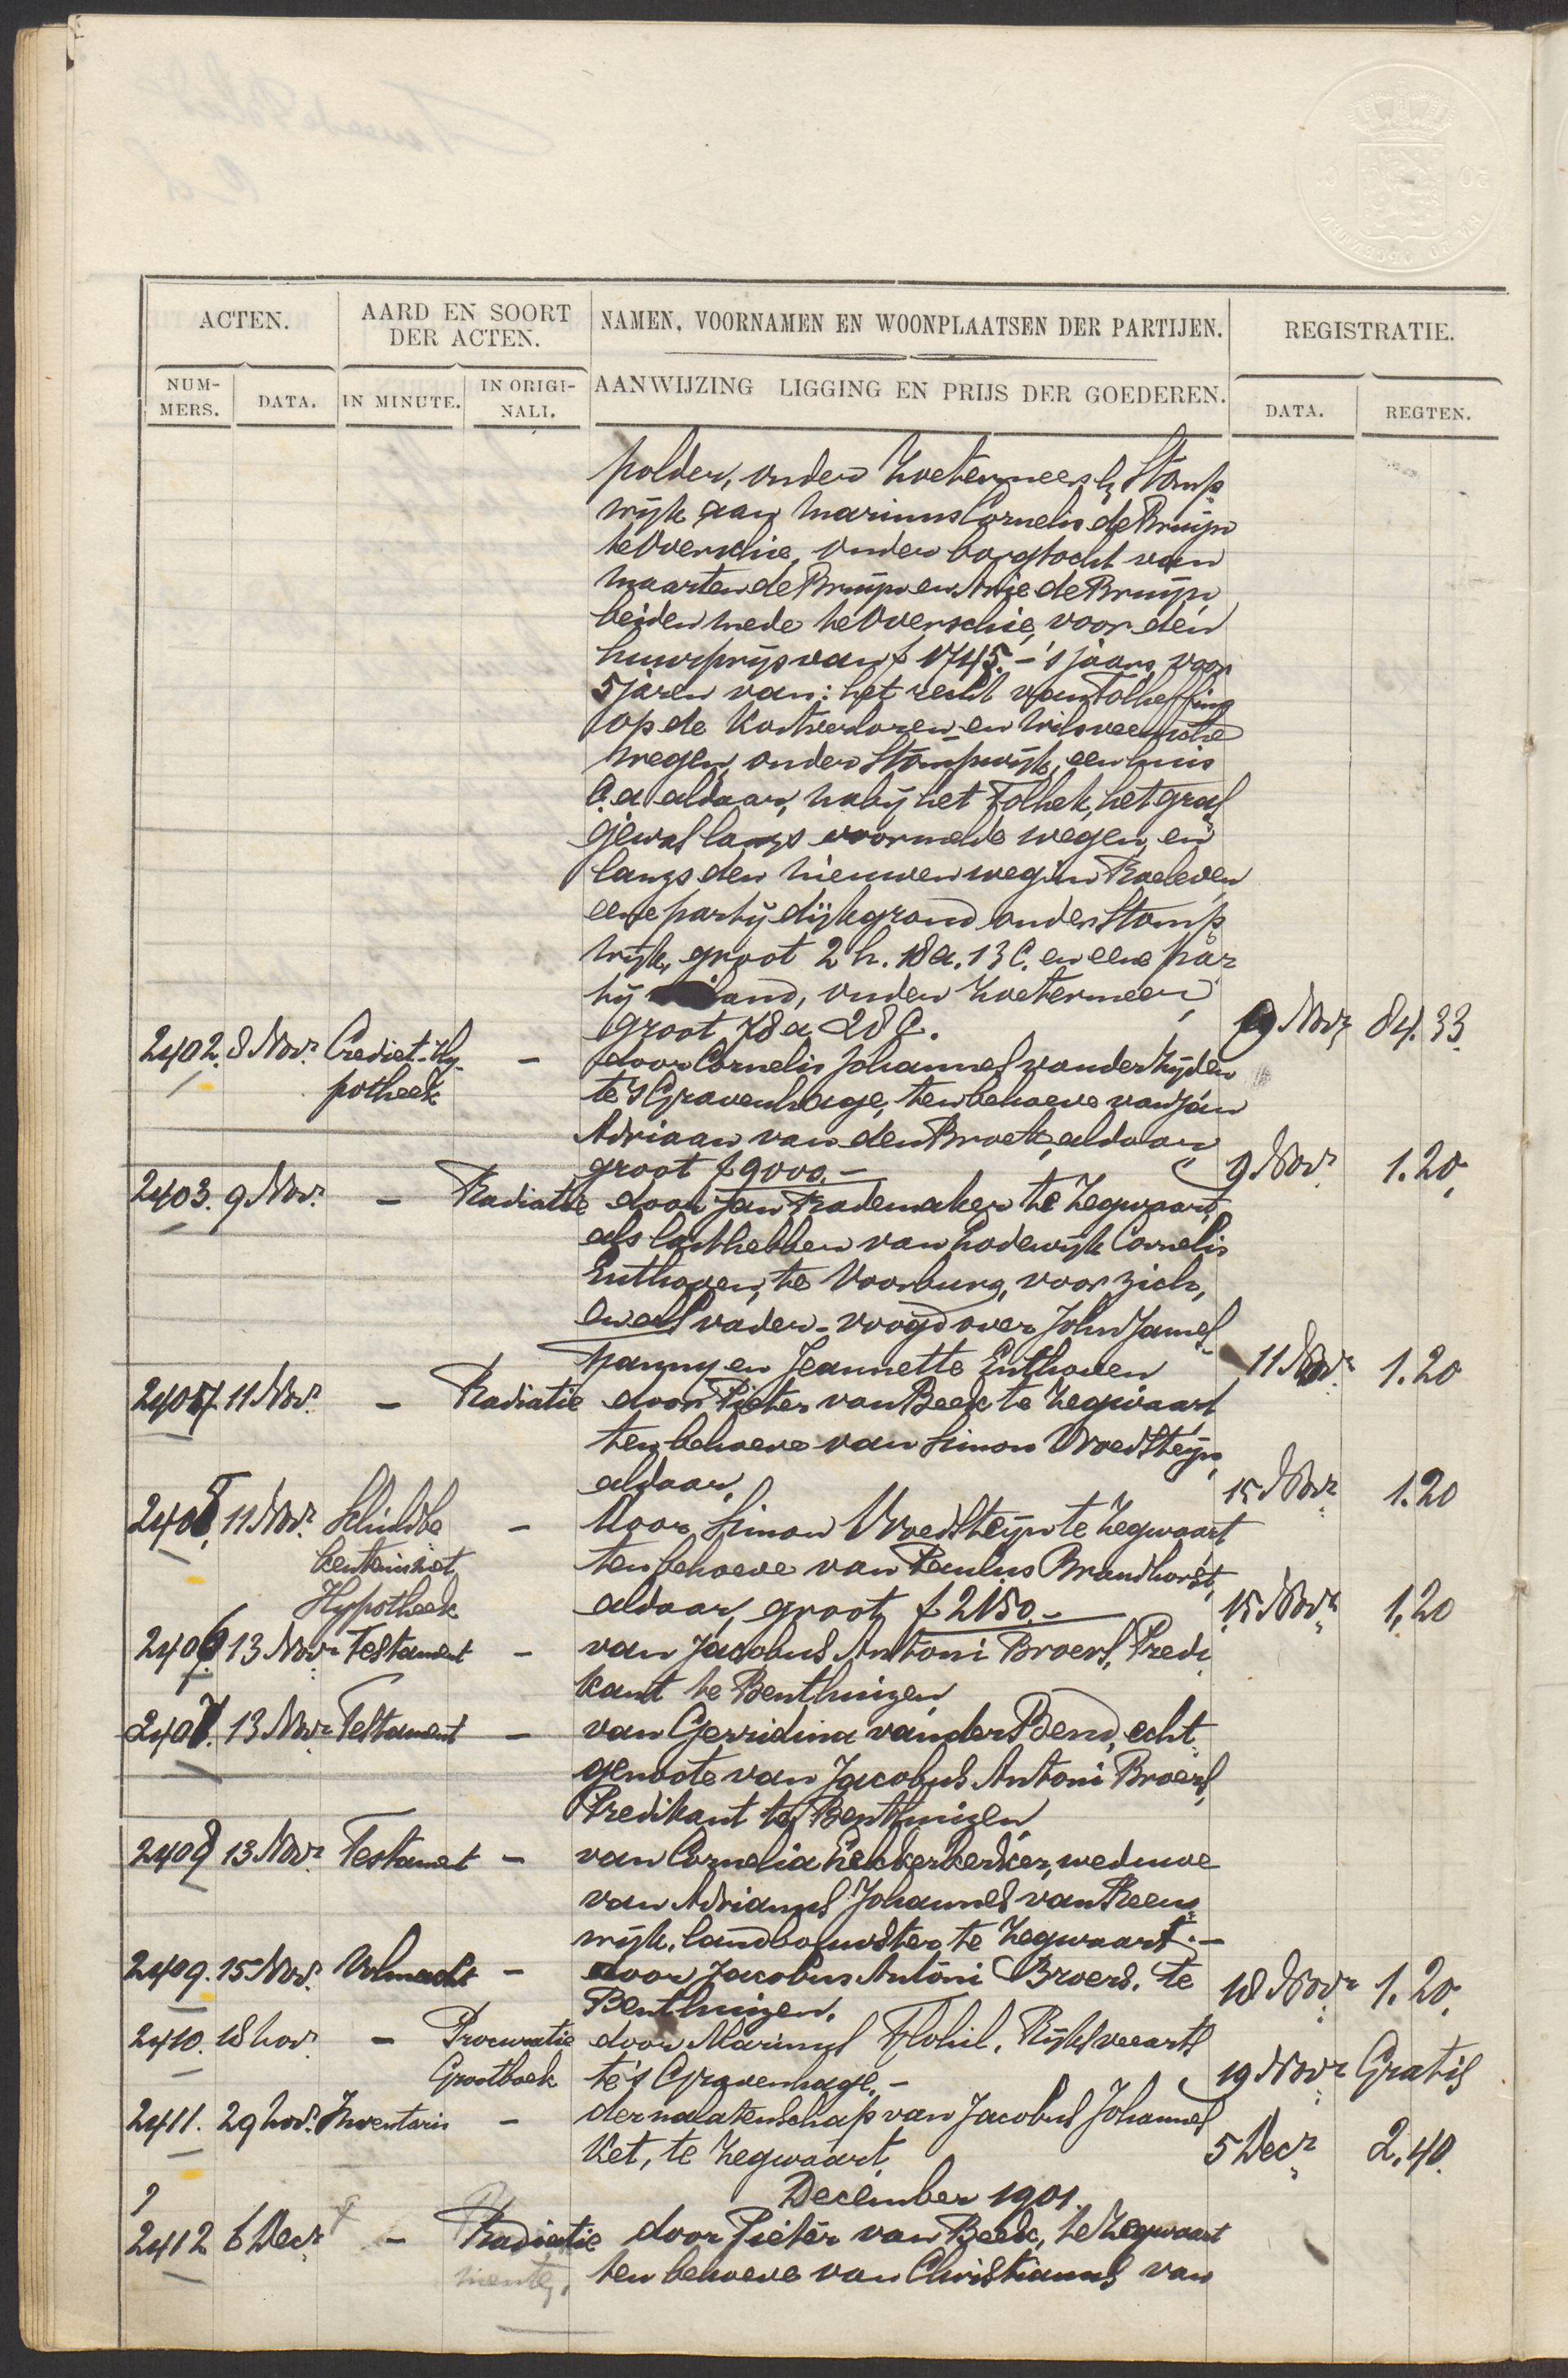 ACTEN.
AARD EN SOORT
DER ACTEN.
NAMEN, VOORNAMEN EN WOONPLAATSEN DER PARTIJEN.
REGISTRATIE.
NUM-
MERS.
DATA.
IN MINUTE.
IN ORIGI-
NALI.
AANWIJZING LIGGING EN PRIJS DER GOEDEREN.
DATA.
REGTEN.
polder, onder Zoetermeer & Stomp-
wijk aan Marinus Cornelis de Bruijn
te Overschie, onder borgtocht van
Maarten de Bruijn en Arie de Bruijn,
beiden mede te Overschie, voor den
huurprijs van f 1745.- 's jaars, voor
5 jaren van: het recht van Tolheffing
op de Kostverloren- en Wilsveensche
wegen, onder Stompwijk, een huis
c.a. aldaar, nabij het Tolhek, het gras
gewas langs voormelde wegen, en
langs den nieuwen weg in Roeleven,
eene partij dijkgrond onder Stomp-
wijk, groot 2 h. 18 a. 13 c. en eene par-
tij land, onder Zoetermeer,
groot 78 a 28 c. 9 Novr 84.33.
2402. 8 Novr. Crediet-Hy- - door Cornelis Johannes van der Hijden
potheek te 's Gravenhage, ten behoeve van Jan
Adriaan van den Broek, aldaar,
groot f 9000.- 9 Novr. 1.20,
2403. 9 Novr. - Radiatie door Jan Rademaker te Zegwaart,
als lasthebber van Lodewijk Cornelis
Enthoven, te Voorburg, voor zich,
en als vader-voogd over John James
Fanny en Jeannette Enthoven 11 Novr. 1.20
2404 11 Novr. - Radiatie door Pieter van Beek te Zegwaart
ten behoeve van Simon Vroedsteijn,
aldaar. 15 Novr. 1.20
2405. 11 Novr. Schuldbe - door Simon Vroedsteijn te Zegwaart
kentenis met ten behoeve van Paulus Brandhorst,
Hypotheek aldaar, groot f 2150.- 15 Novr. 1,20
2406. 13 Novr Testament - van Jacobus Antoni Broers, Predi
kant te Benthuizen
2407. 13 Novr Testament - van Gerridina van der Bend, echt-
genoote van Jacobus Antoni Broers,
Predikant te Benthuizen,
2408 13 Novr. Testament - van Cornelia Lekkerkerker, weduwe
van Adrianus Johannes van Reeu
wijk, landbouwster te Zegwaart.-
2409. 15 Novr. Volmacht - door Jacobus Antoni Broers, te
Benthuizen. 18 Novr. 1.20.
2410. 18 Novr. - Procuratie door Marinus Flohil, Rijksveearts
Grootboek te 's Gravenhage.- 19 Novr. Gratis
2411. 29 Novr. Inventaris - der nalatenschap van Jacobus Johannes
Ket, te Zegwaart. 5 Decr 2.40.
December 1901.
2412 6 Decr - Radiatie door Pieter van Beek, te Zegwaart
ten behoeve van Christianus van